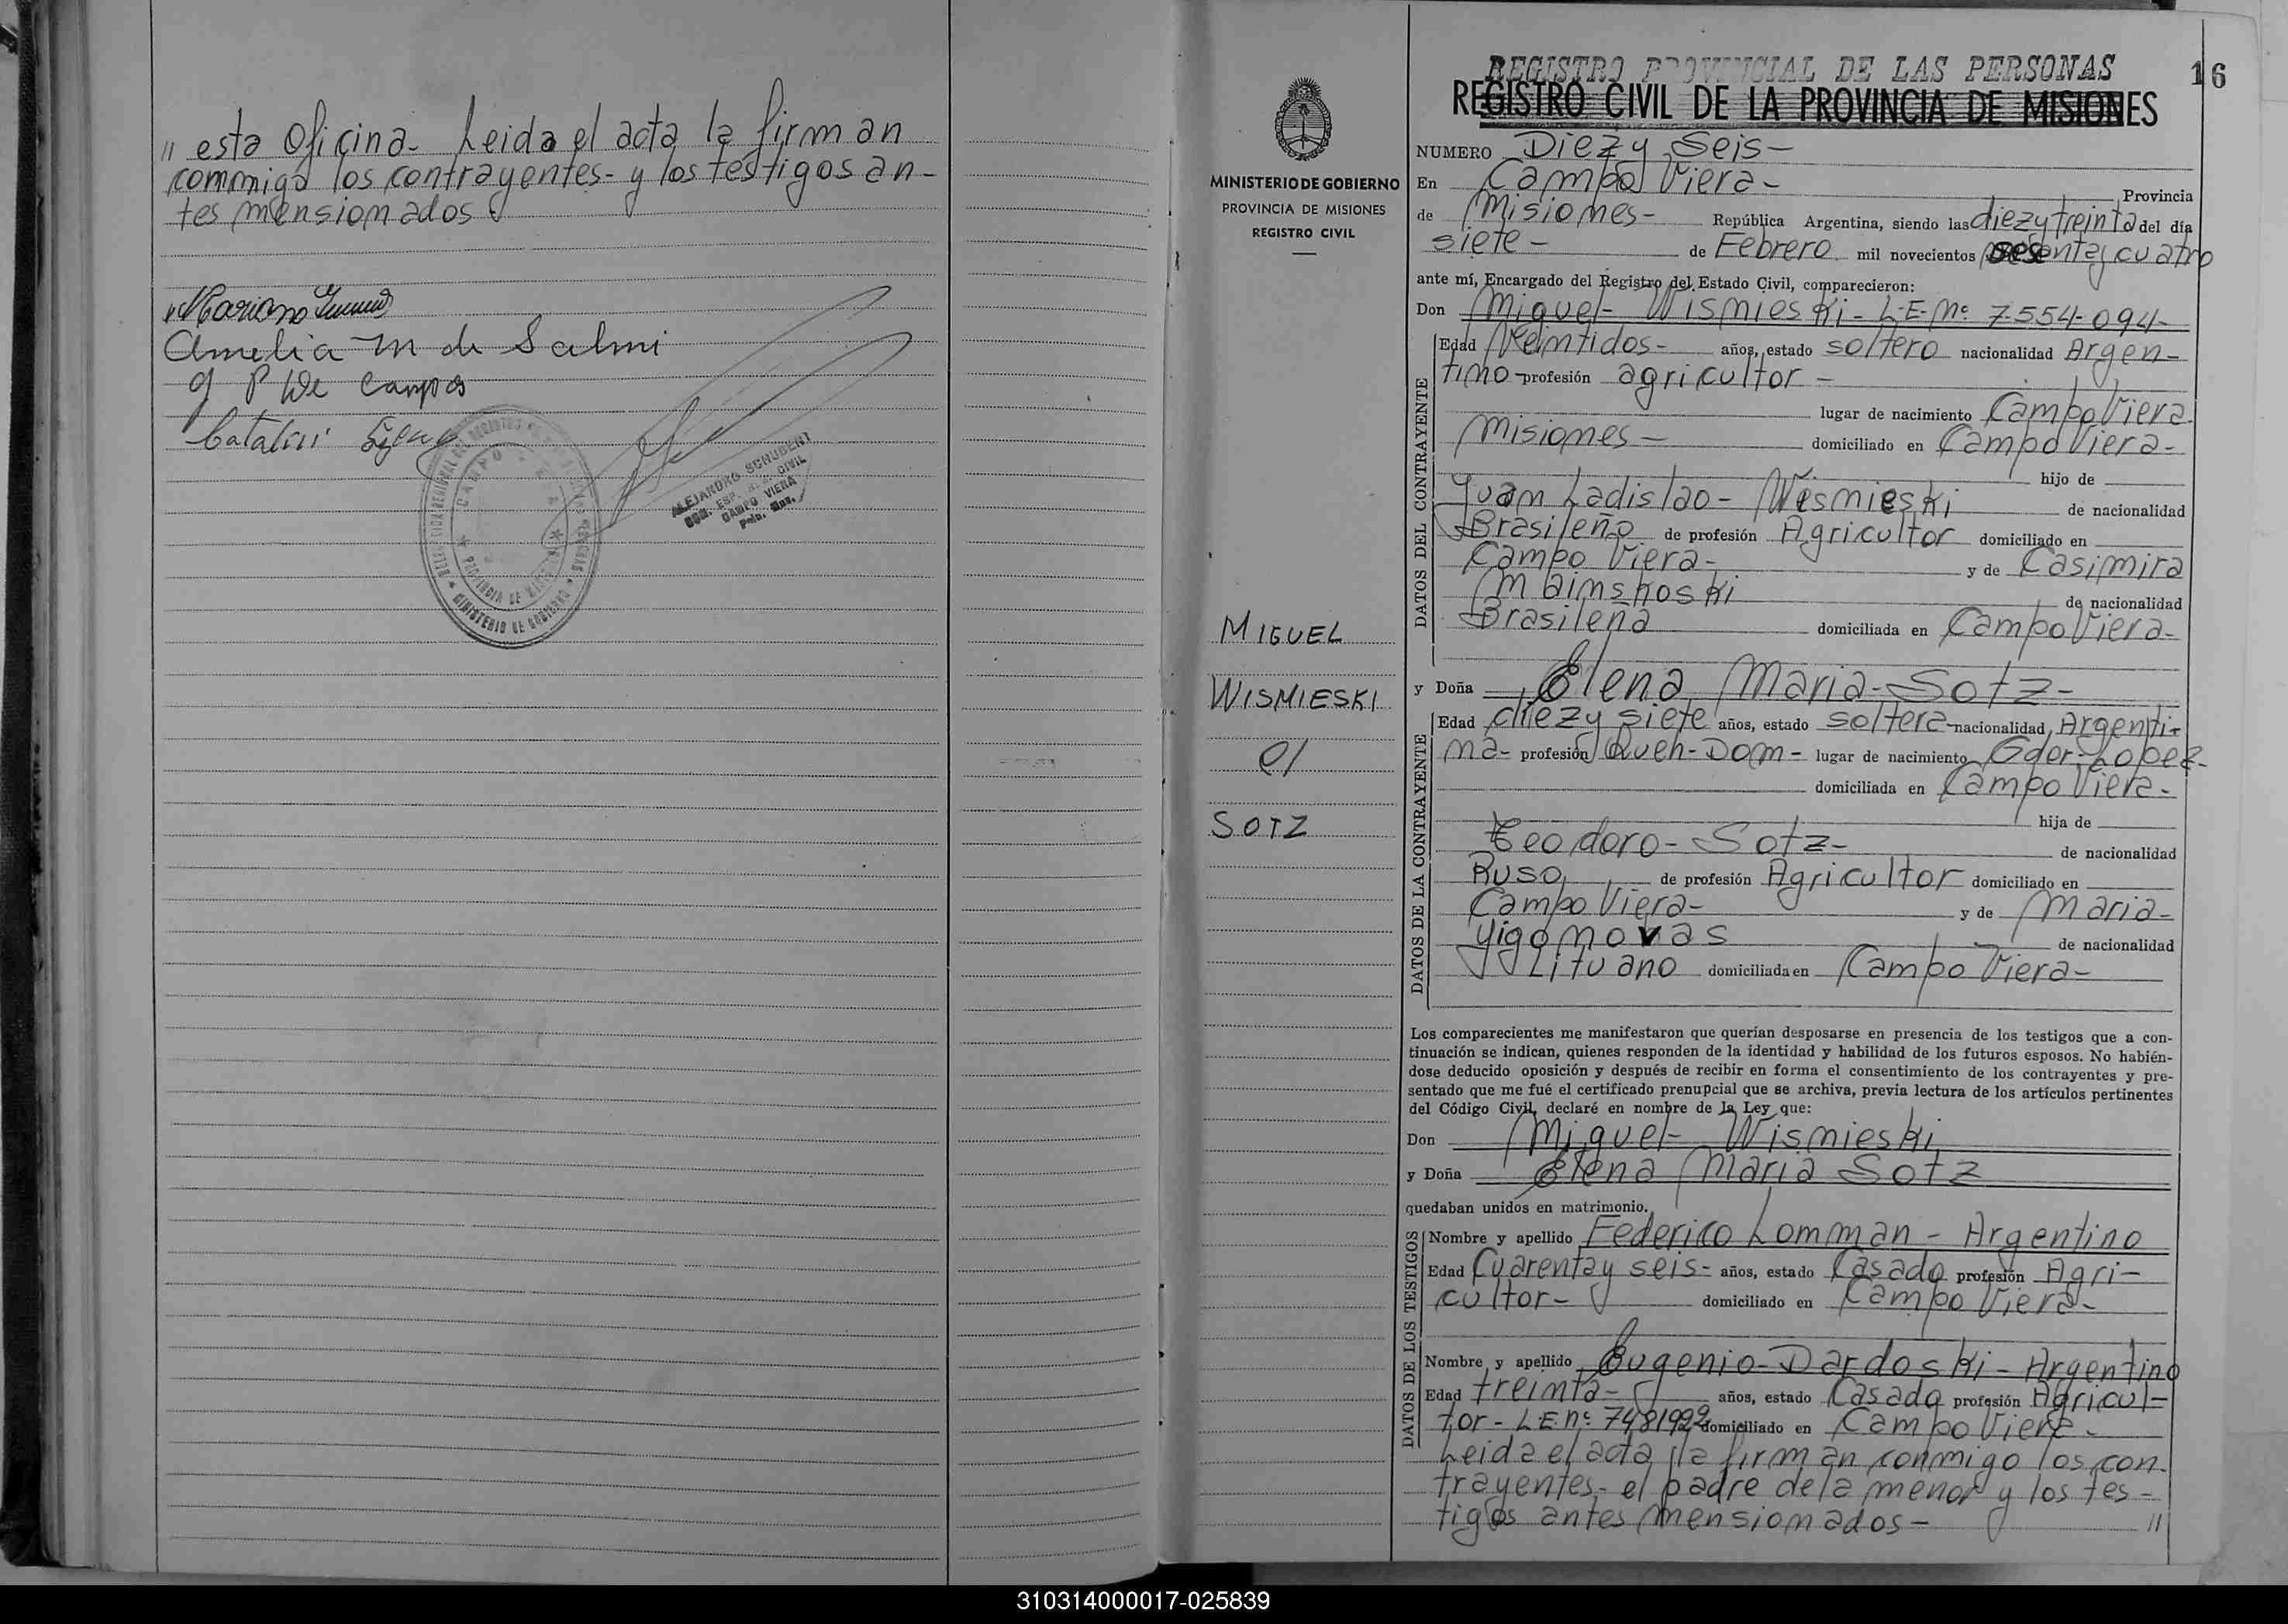 " esta Oficina- Leida el acta la firman
commigo los contrayentes- y los testigos an-
tes mensionados
Mariano
Amelia M de Salmi
g P de Campos
Catalin
CAMPO VIERA
PROVINCIA DE MISIONES
MINISTERIO DE GOBIERNO
ALEJANDRO SCHUBERT
CAMPO VIERA
Pcia. Mnes.
MINISTERIO DE GOBIERNO
PROVINCIA DE MISIONES
REGISTRO CIVIL
MIGUEL
WISMIESKI
c/
SOTZ
REGISTRO PROVINCIAL DE LAS PERSONAS
16
REGISTRO CIVIL DE LA PROVINCIA DE MISIONES
NUMERO Diez y Seis-
En Campo Viera- Provincia
de Misiones- República Argentina, siendo las diez y treinta del día
siete- de Febrero mil novecientos sesenta y cuatro
ante mí, Encargado del Registro del Estado Civil, comparecieron:
Don Miguel- Wismieski- L-E-Nº 7.554-094-
DATOS DEL CONTRAYENTE
Edad Veintidos- años, estado soltero nacionalidad Argen-
tino- profesión agricultor-
lugar de nacimiento Campo Viera
Misiones- domiciliado en Campo Viera-
hijo de
Juan Ladislao- Wismieski de nacionalidad
Brasileño de profesión Agricultor domiciliado en
Campo Viera- y de Casimira
Maimskoski de nacionalidad
Brasileña domiciliada en Campo Viera-
y Doña Elena Maria-Sotz-
DATOS DE LA CONTRAYENTE
Edad diez y siete años, estado soltera- nacionalidad Argenti-
na- profesión Queh-Dom- lugar de nacimiento Gder-Lopez-
domiciliada en Campo Viera-
hija de
Teodoro- Sotz- de nacionalidad
Ruso de profesión Agricultor domiciliado en
Campo Viera- y de Maria-
Yigomovas de nacionalidad
Lituano domiciliada en Campo Viera-
Los comparecientes me manifestaron que querían desposarse en presencia de los testigos que a con-
tinuación se indican, quienes responden de la identidad y habilidad de los futuros esposos. No habién-
dose deducido oposición y después de recibir en forma el consentimiento de los contrayentes y pre-
sentado que me fué el certificado prenupcial que se archiva, previa lectura de los artículos pertinentes
del Código Civil, declaré en nombre de la Ley que:
Don Miguel- Wismieski
y Doña Elena Maria Sotz
quedaban unidos en matrimonio.
DATOS DE LOS TESTIGOS
Nombre y apellido Federico Lomman - Argentino
Edad Cuarenta y seis- años, estado Casado profesión Agri-
cultor- domiciliado en Campo Viera-
Nombre y apellido Eugenio-Dardoski-Argentino
Edad treinta- años, estado Casado profesión Agricul-
tor- L.E.nº 7481992 domiciliado en Campo Viera-
Leida el acta la firman conmigo los con-
trayentes- el padre de la menor y los tes-
tigos antes mensionados- "
310314000017-025839